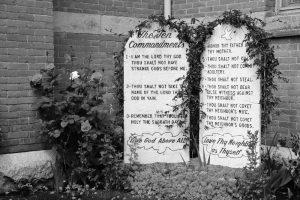 The Ten
Commandments
I - I AM THE LORD THY GOD.
THOU SHALT NOT HAVE
STRANGE GODS BEFORE ME
2 - THOU SHALT NOT TAKE
NAME OF THE LORD THY
GOD IN VAIN.
3 - REMEMBER THAT THOU
HOLY THE SABBATH DAY
Love God Above All
HONOR THY FATHER
THY MOTHER.
THOU SHALT NOT KILL
THOU SHALT NOT COMMIT
ADULTERY.
THOU SHALT NOT STEAL.
THOU SHALT NOT BEAR
FALSE WITNESS AGAINST
THY NEIGHBOR.
THOU SHALT NOT COVET
THY NEIGHBOR'S WIFE.
THOU SHALT NOT COVET
THY NEIGHBOR'S GOODS.
Love Thy Neighbor
as Thyself